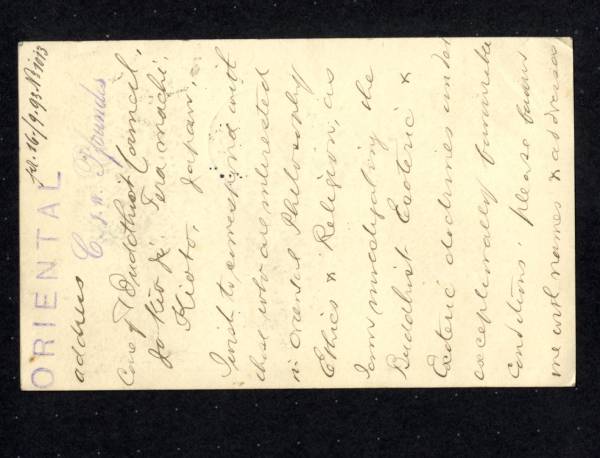 ORIENTAL
address
C. J. W. Pfoundes
Care of Buddhist Council,
Jo Kio Ji Tera machi.
Kioto, Japan.
I wish to correspond with
those who are interested
in oriental Philosophy
Ethics & Religion, as
I am investigating the
Buddhist Esoteric &
Exoteric doctrines under
exceptionally favourable
Conditions. please favour
me with names & addresses